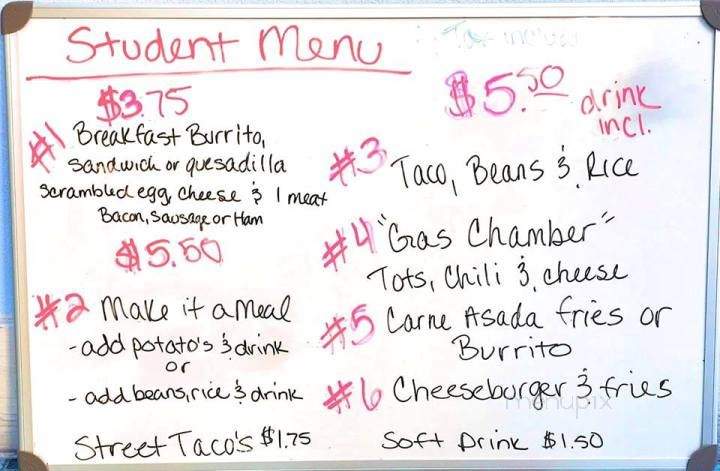 Student Menu
$3.75
#1 Breakfast Burrito,
sandwich or quesadilla
scrambled egg, cheese & 1 meat
Bacon, Sausage or Ham
$5.50
#2 Make it a meal
- add potato's & drink
or
- add beans, rice & drink
Street Taco's $1.75
$5.50 drink
incl.
#3 Taco, Beans & Rice
#4 "Gas Chamber"
Tots, Chili &, cheese
#5 Carne Asada fries or
Burrito
#6 Cheeseburger & fries
menupix
Soft Drink $1.50